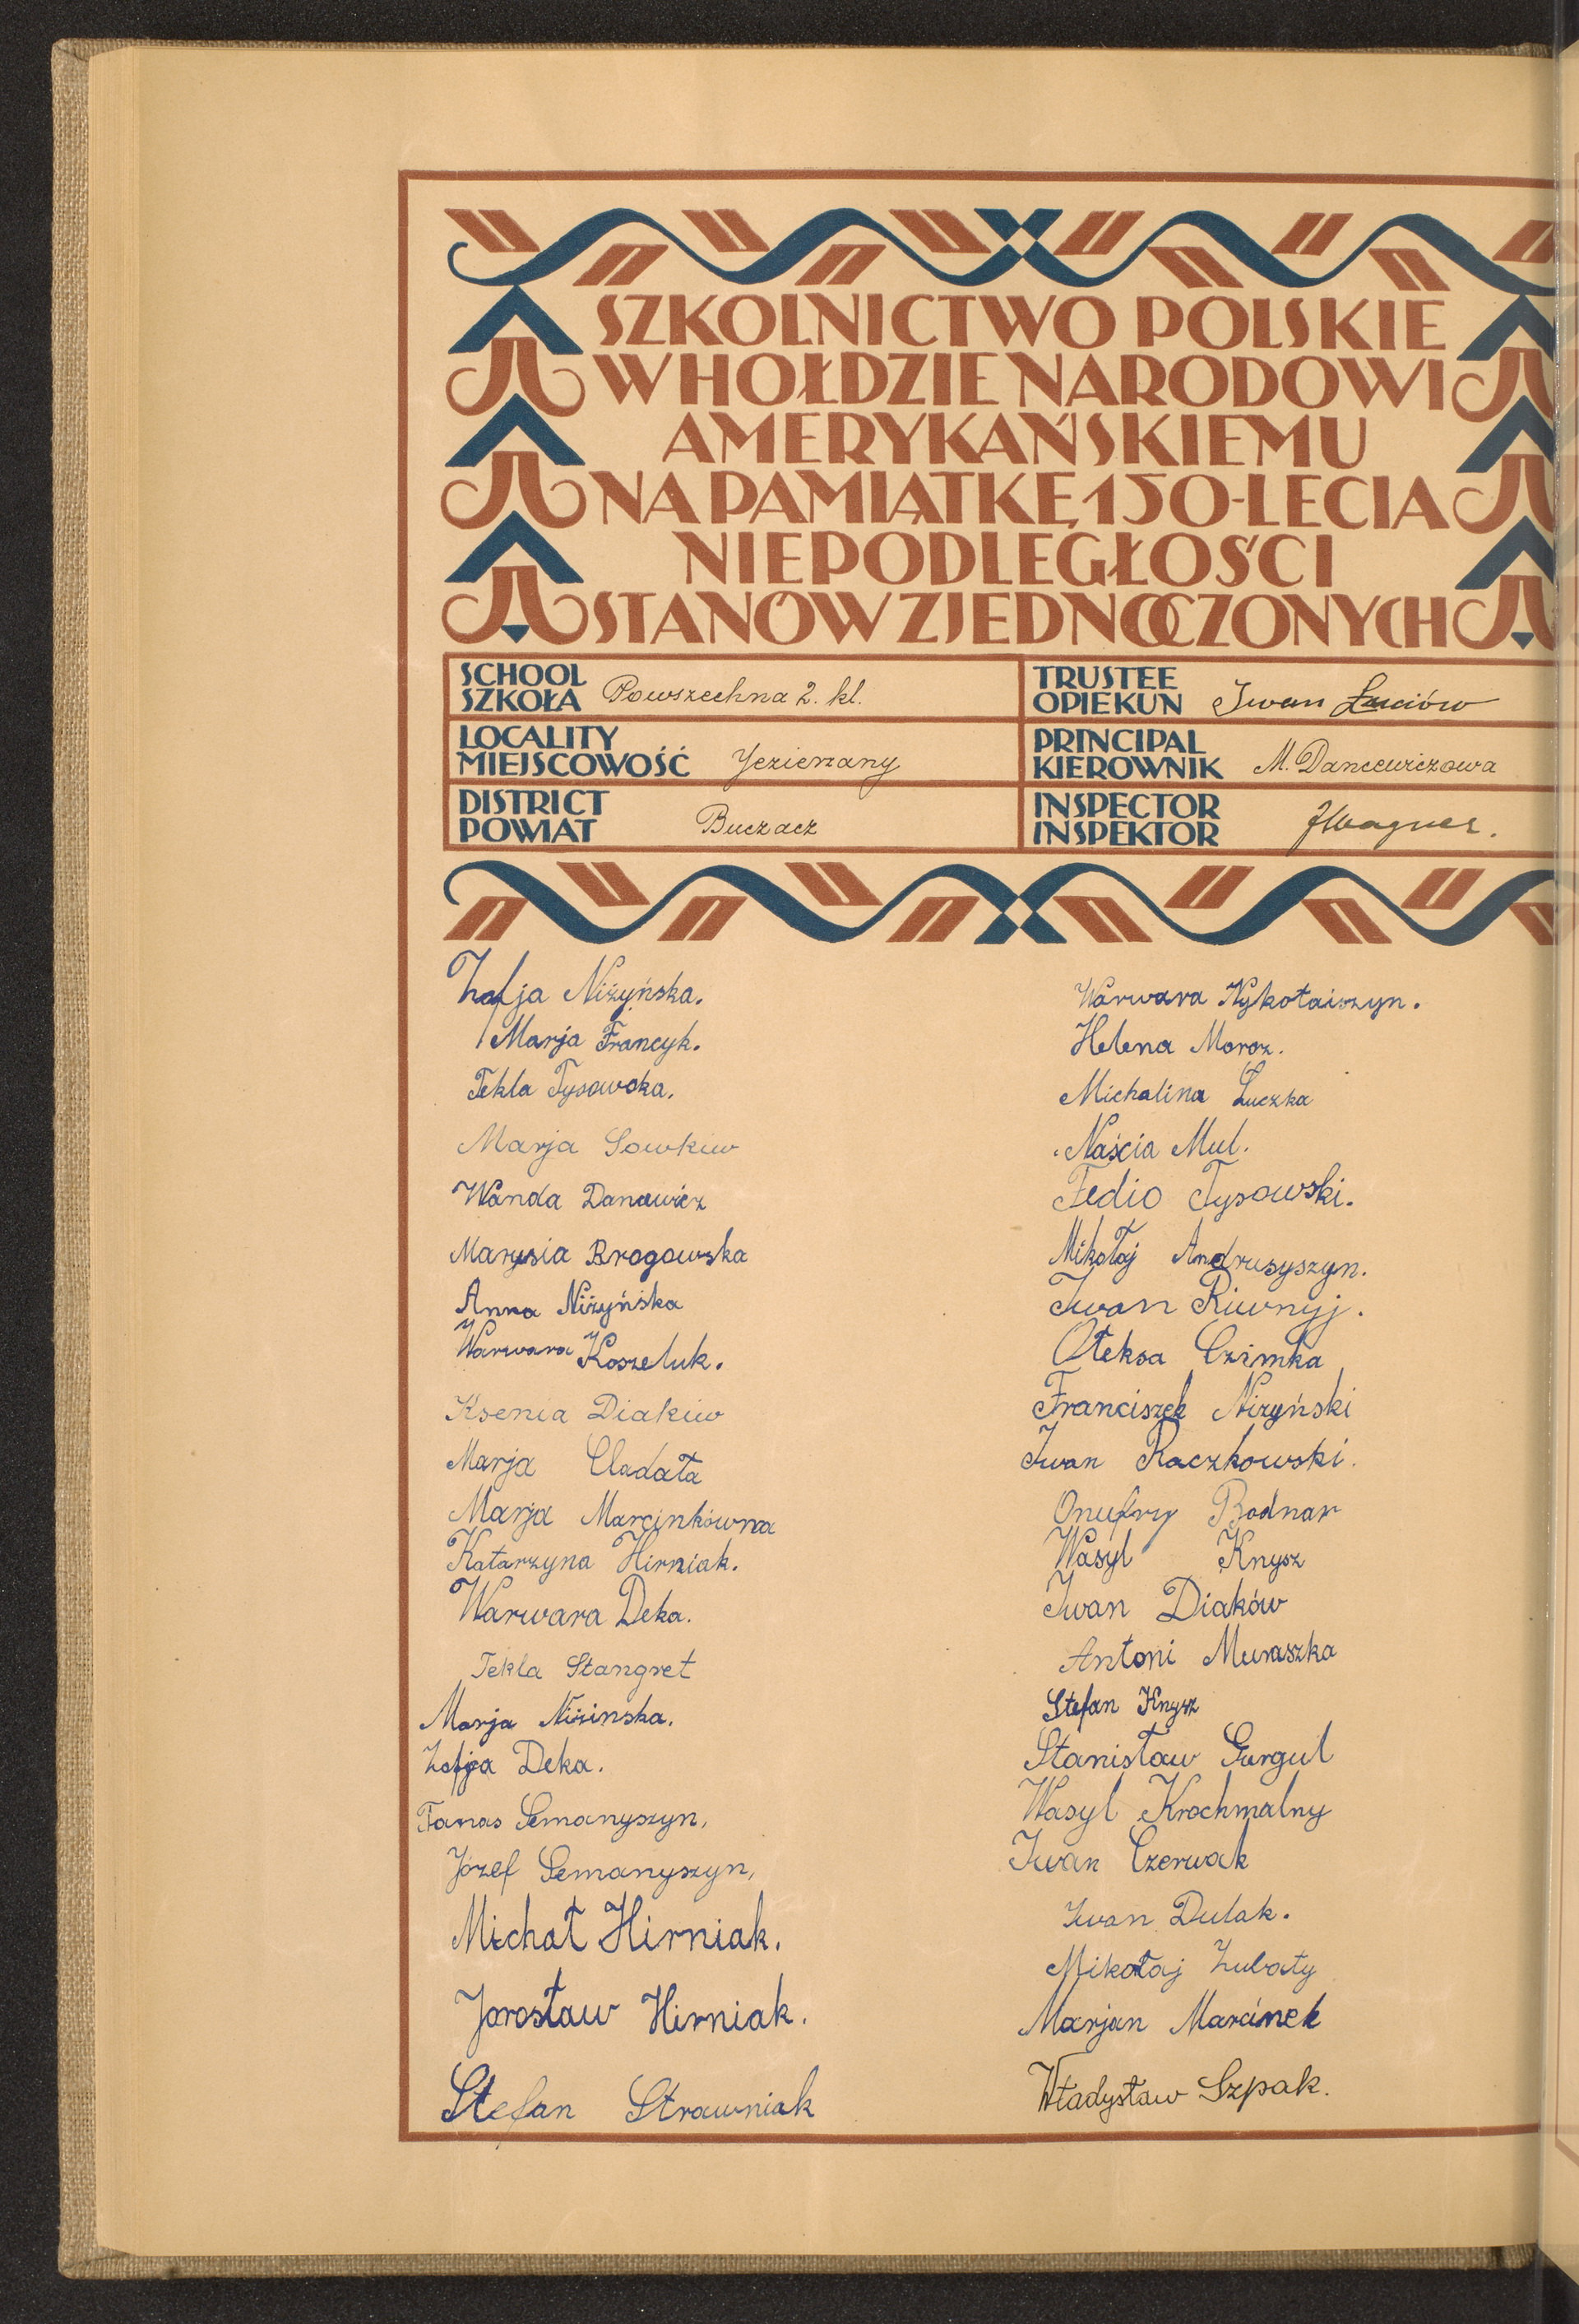 SZKOLNICTWO POLSKIE
W HOŁDZIE NARODOWI
AMERYKAŃSKIEMU
NA PAMIĄTKĘ 150-LECIA
NIEPODLEGŁOŚCI
STANÓW ZJEDNOCZONYCH
SCHOOL
SZKOŁA Powszechna 2. kl.
TRUSTEE
OPIEKUN Iwan Łuciów
LOCALITY
MIEJSCOWOŚĆ Jezierzany
PRINCIPAL
KIEROWNIK M. Dancewiczowa
DISTRICT
POWIAT Buczacz
INSPECTOR
INSPEKTOR JWagner.
Zofja Niżyńska.
Marja Francyk.
Tekla Tysowska.
Marja Sowkiw
Wanda Danowicz
Marysia Brogowska
Anna Niżyńska
Warwara Koszeluk.
Ksenia Diakiw
Marja Cladata
Marja Marcinkówna
Katarzyna Hirniak.
Warwara Deka.
Tekla Stangret
Marja Niżinska.
Zofja Deka.
Tanas Semanyszyn,
Józef Semanyszyn,
Michał Hirniak.
Jarosław Hirniak.
Stefan Strawniak
Warwara Nykołaiszyn.
Helena Moroz.
Michalina Łuczka
Naścia Mul.
Fedio Tysowski.
Mikołaj Andrusyszyn.
Iwan Riwnyj.
Ołeksa Czimka
Franciszek Niżyński
Iwan Raczkowski.
Onufry Bodnar
Wasyl Knysz
Iwan Diaków
Antoni Muraszka
Stefan Knysz
Stanisław Gurgul
Wasyl Krochmalny
Iwan Czerwak
Iwan Dulak.
Mikołaj Zubaty
Marjan Marcinek
Władysław Szpak.